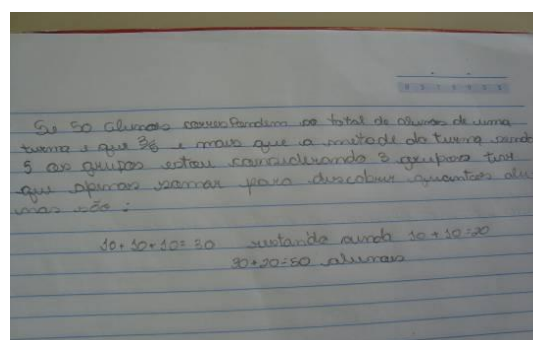 Se 50 alunos correspondem ao total de alunos de uma
turma e que 3/5 é mais que a metade da turma sendo
5 os grupos estou considerando 3 grupos tive
que apenas somar para descobrir quantos alu
nos são:
10+10+10=30 restando ainda 10+10=20
30+20=50 alunos